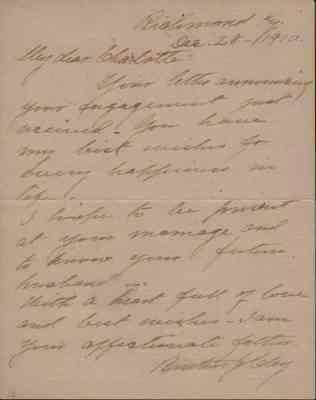 Richmond
Dec. 28 - /1910.
My dear Charlotte
Your letter announcing
your engagement just
received - You have
my best wishes for
every happiness in
life.
I hope to be present
at your marriage and
to know your future
husband -
With a heart full of love
and best wishes - I am
your affectionate father